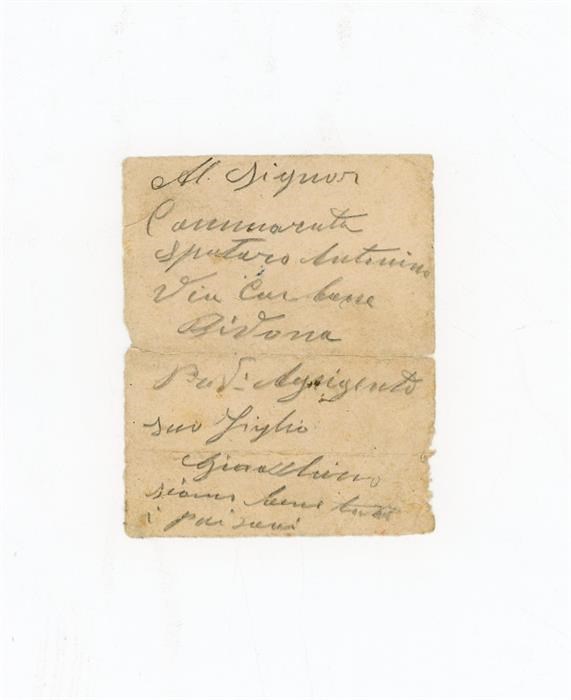 Al Signor
Cammarata
Spataro Antonino
Via Carbone
Bivona
Prov- Agrigento
suo figlio
Gioacchino
siamo bene tutti
i paisani